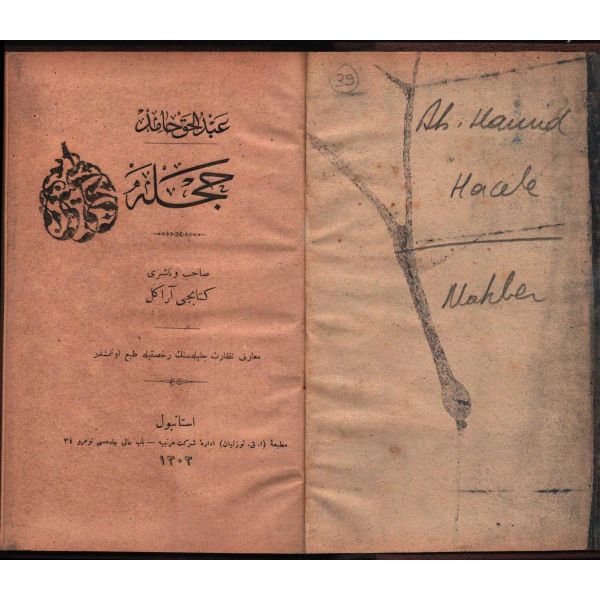 عبدالحق حامد
حجله
صاحب و ناشرى
كتابجى آراكل
معارف نظارت جليله سنك رخصتيله طبع اولنمشدر
استانبول
مطبعۀ (ا. ق. توزليان) ادارۀ شركت مرتبيه — باب عالى جاده سى نومرو ٣٤
١٣٠٣
39
Ab. Hamid
Hacele
Makber